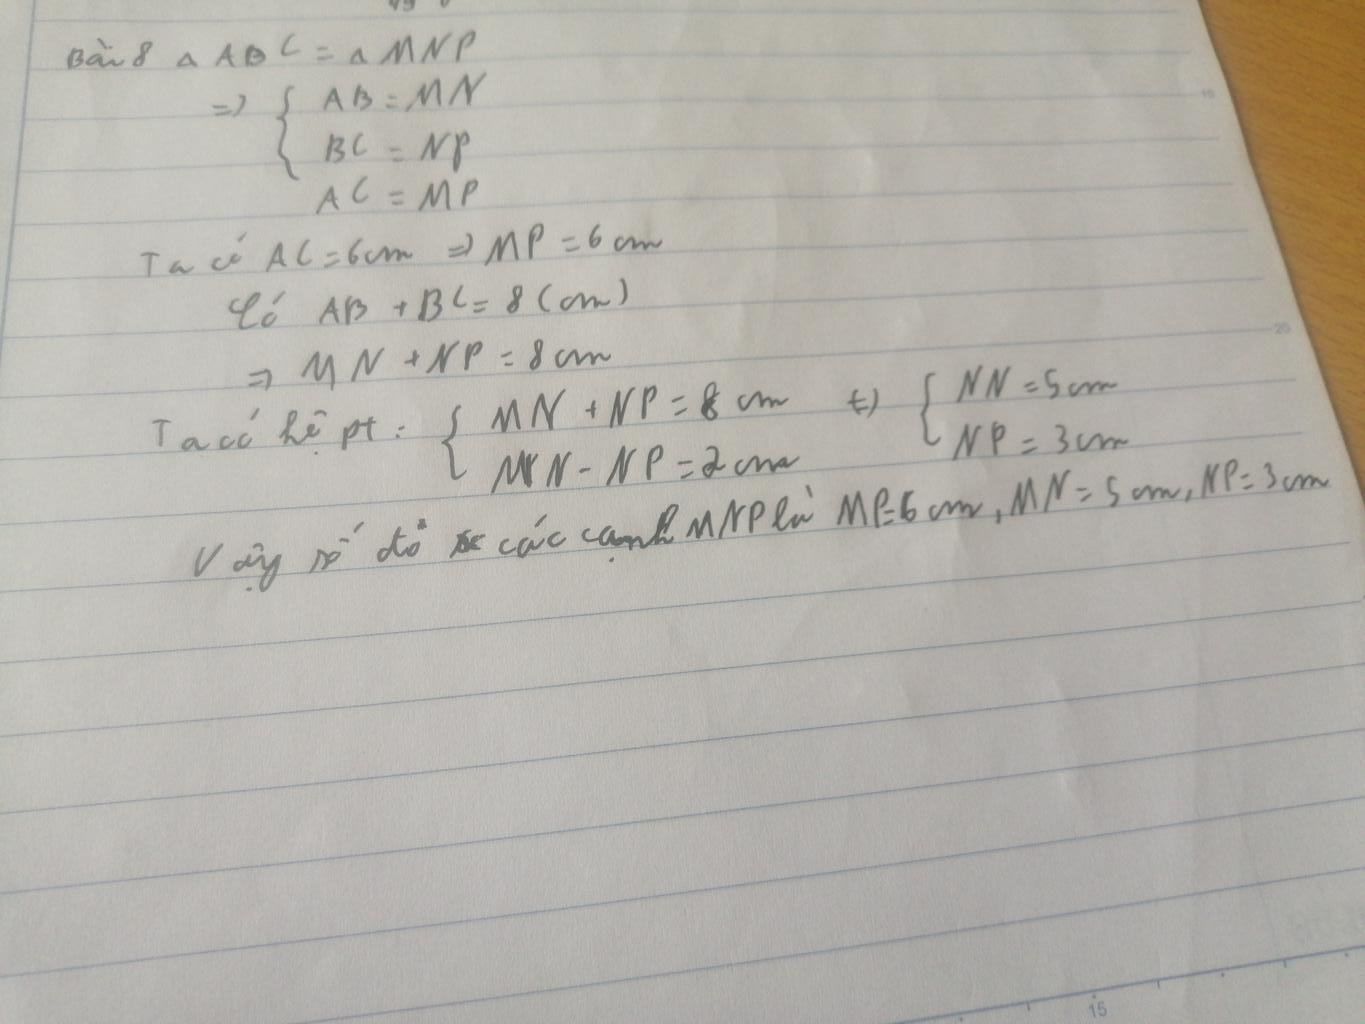 Bài 8 △ ABC = △ MNP
=> { AB = MN
BC = NP
AC = MP
Ta có AC = 6cm => MP = 6 cm
Có AB + BC = 8 (cm)
=> MN + NP = 8 cm
Ta có hệ pt : { MN + NP = 8 cm <=> { NN = 5 cm
MN - NP = 2 cm NP = 3 cm
Vậy số đo các cạnh MNP là MP = 6 cm, MN = 5 cm, NP = 3 cm
10
20
15